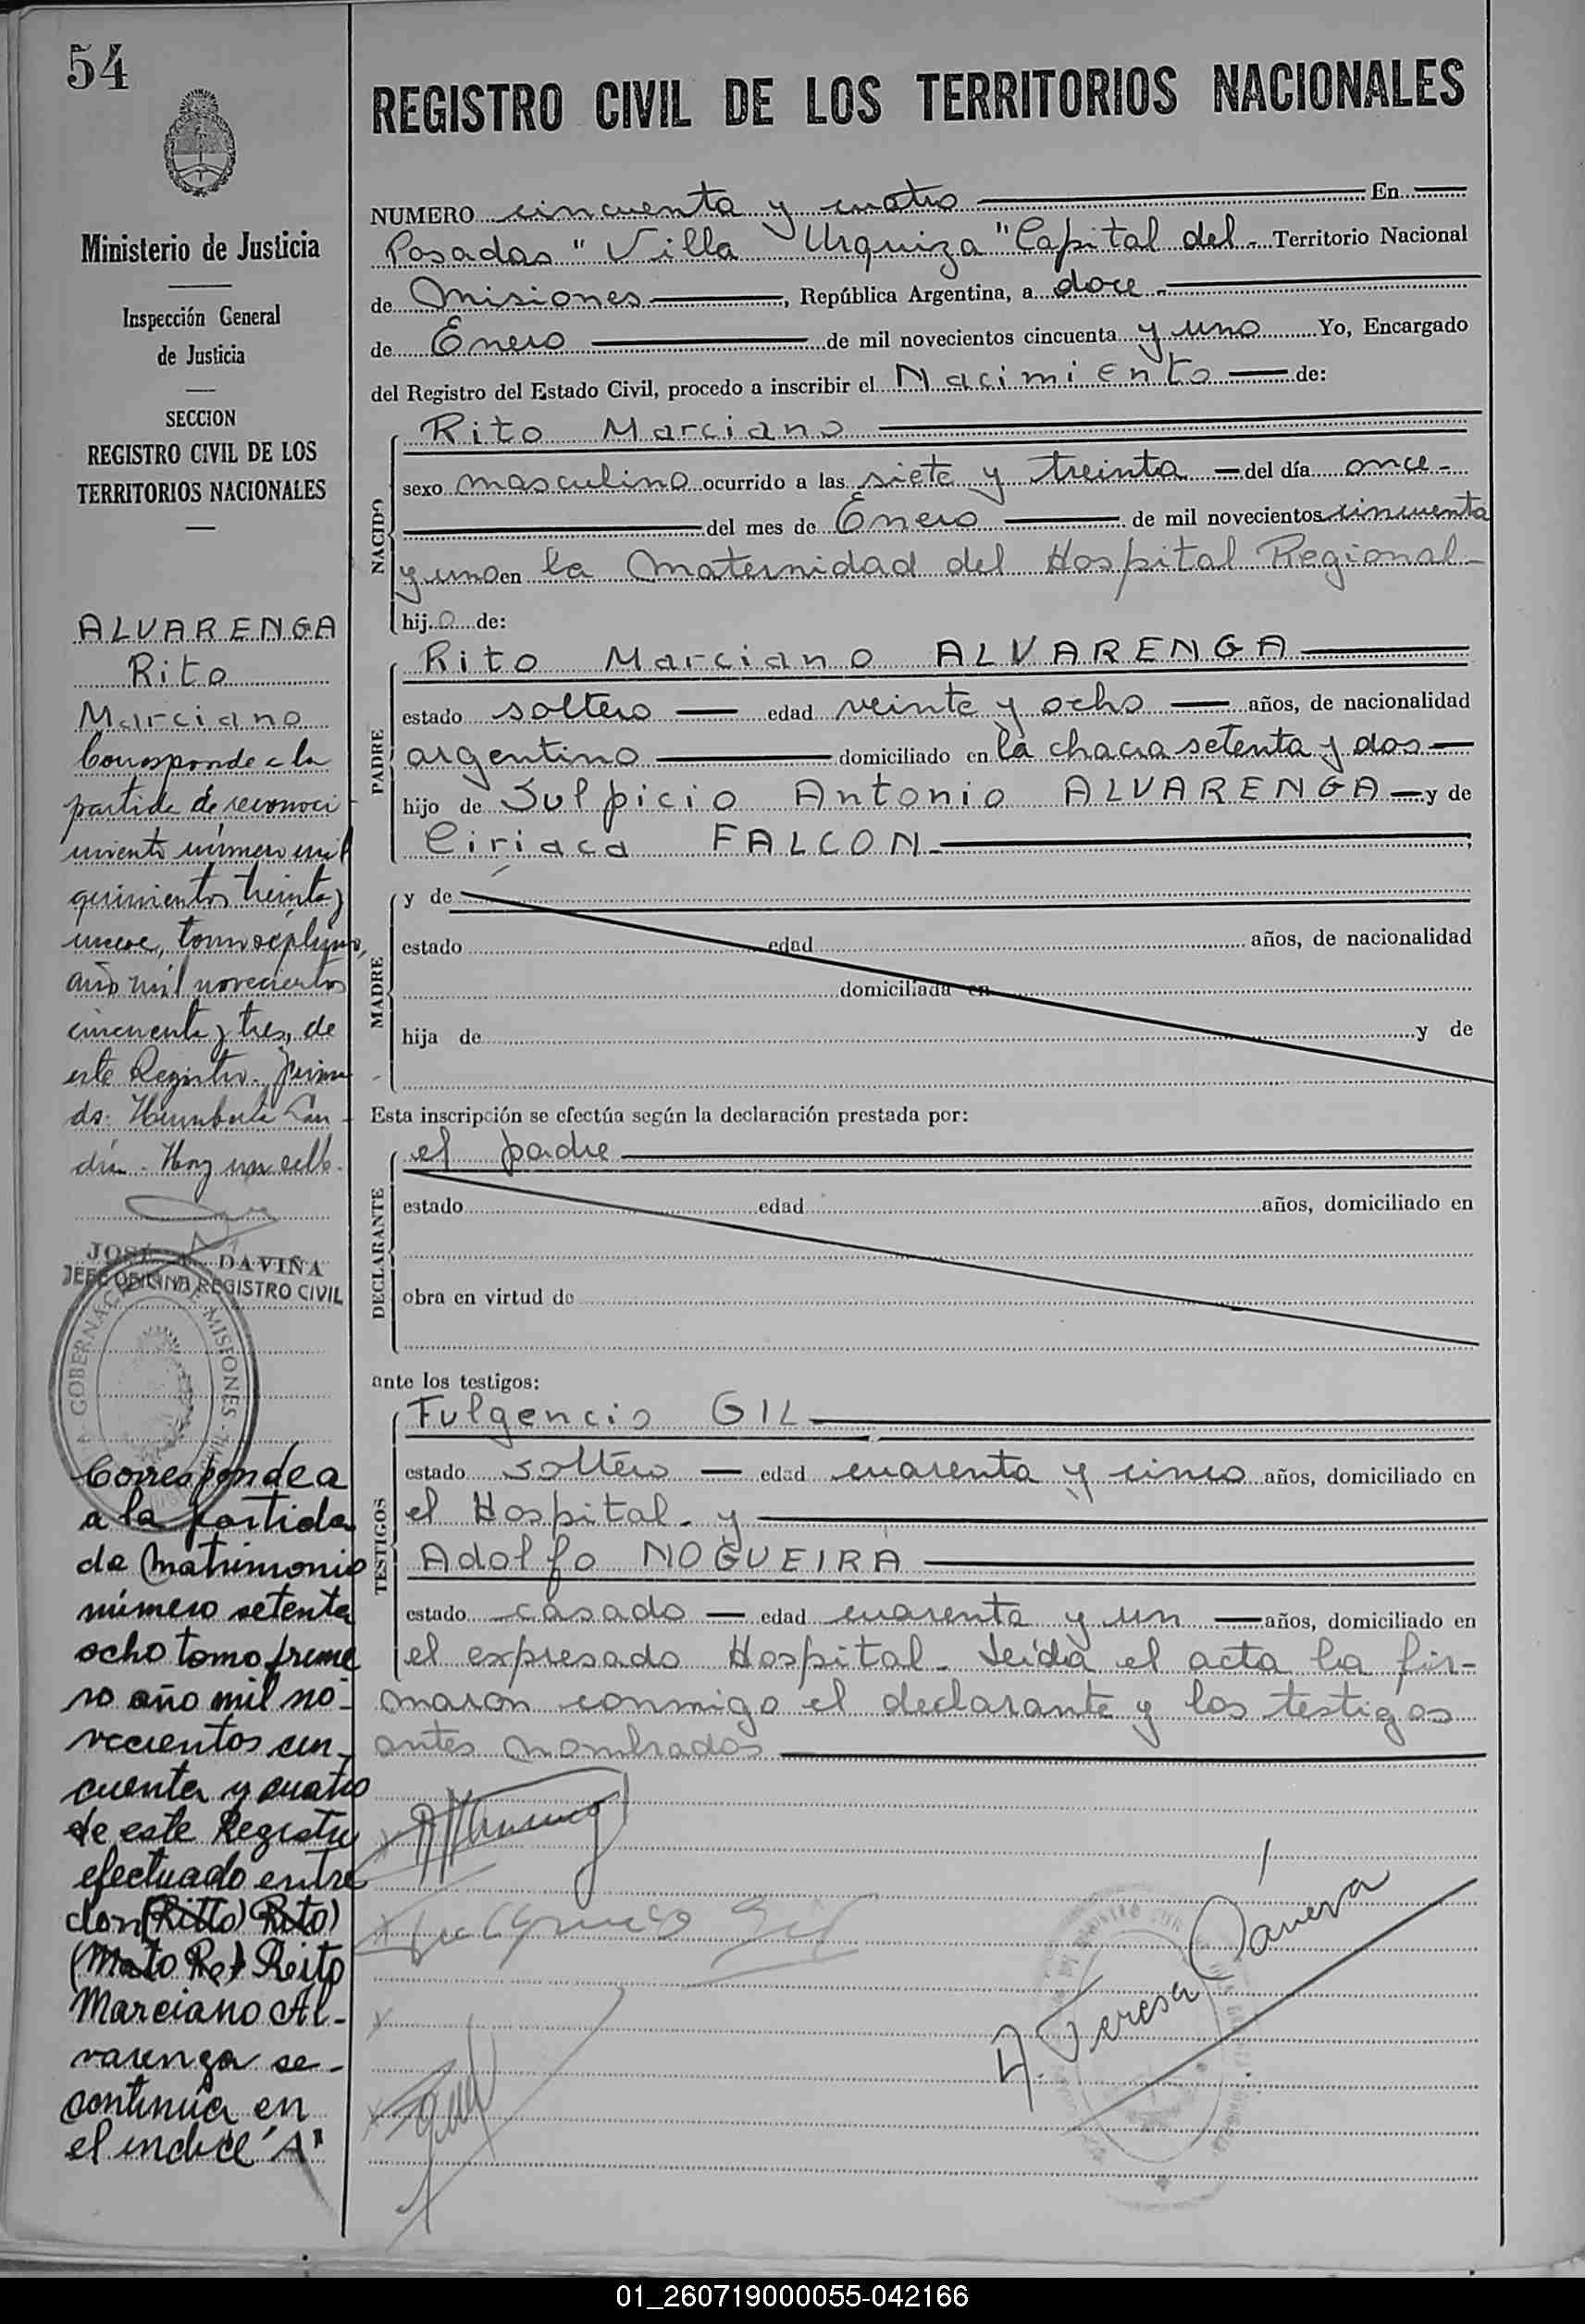 54
Ministerio de Justicia
Inspección General
de Justicia
SECCION
REGISTRO CIVIL DE LOS
TERRITORIOS NACIONALES
ALVARENGA
Rito
Marciano
Corresponde a la
partida de reconoci
miento número mil
quinientos treinta y
nueve, tomo séptimo,
año mil novecientos
cincuenta y tres, de
este Registro.
do. Humberto
JOSÉ A. DAVIÑA
JEFE OFICINA REGISTRO CIVIL
GOBERNACION DE MISIONES
Corresponde a
a la partida
de matrimonio
número setenta
ocho tomo prime
ro año mil no-
vecientos cin-
cuenta y cuatro
de este Registro
efectuado entre
don (Ritto) Rito)
(Mato Re) Reito
Marciano Al-
varenga se-
continúa en
el indice "A"
REGISTRO CIVIL DE LOS TERRITORIOS NACIONALES
NUMERO cincuenta y cuatro En
Posadas "Villa Urquiza" Capital del - Territorio Nacional
de Misiones, República Argentina, a doce -
de Enero de mil novecientos cincuenta y uno Yo, Encargado
del Registro del Estado Civil, procedo a inscribir el Nacimiento de:
NACIDO
Rito Marciano
sexo masculino ocurrido a las siete y treinta del día once -
del mes de Enero de mil novecientos cincuenta
y uno en la Maternidad del Hospital Regional -
hijo de:
PADRE
Rito Marciano ALVARENGA
estado soltero edad veinte y ocho años, de nacionalidad
argentino domiciliado en la chacra setenta y dos
hijo de Sulpicio Antonio ALVARENGA y de
Ciriaca FALCON ;
MADRE
y de
estado edad años, de nacionalidad
domiciliada en
hija de y de
Esta inscripción se efectúa según la declaración prestada por:
DECLARANTE
el padre
estado edad años, domiciliado en
obra en virtud de
ante los testigos:
TESTIGOS
Fulgencio GIL
estado soltero edad cuarenta y cinco años, domiciliado en
el Hospital - y
Adolfo NOGUEIRA
estado casado edad cuarenta y un años, domiciliado en
el expresado Hospital. Leída el acta la fir-
maron conmigo el declarante y los testigos
antes nombrados
Fulgencio Gil
A. Teresa
01_260719000055-042166